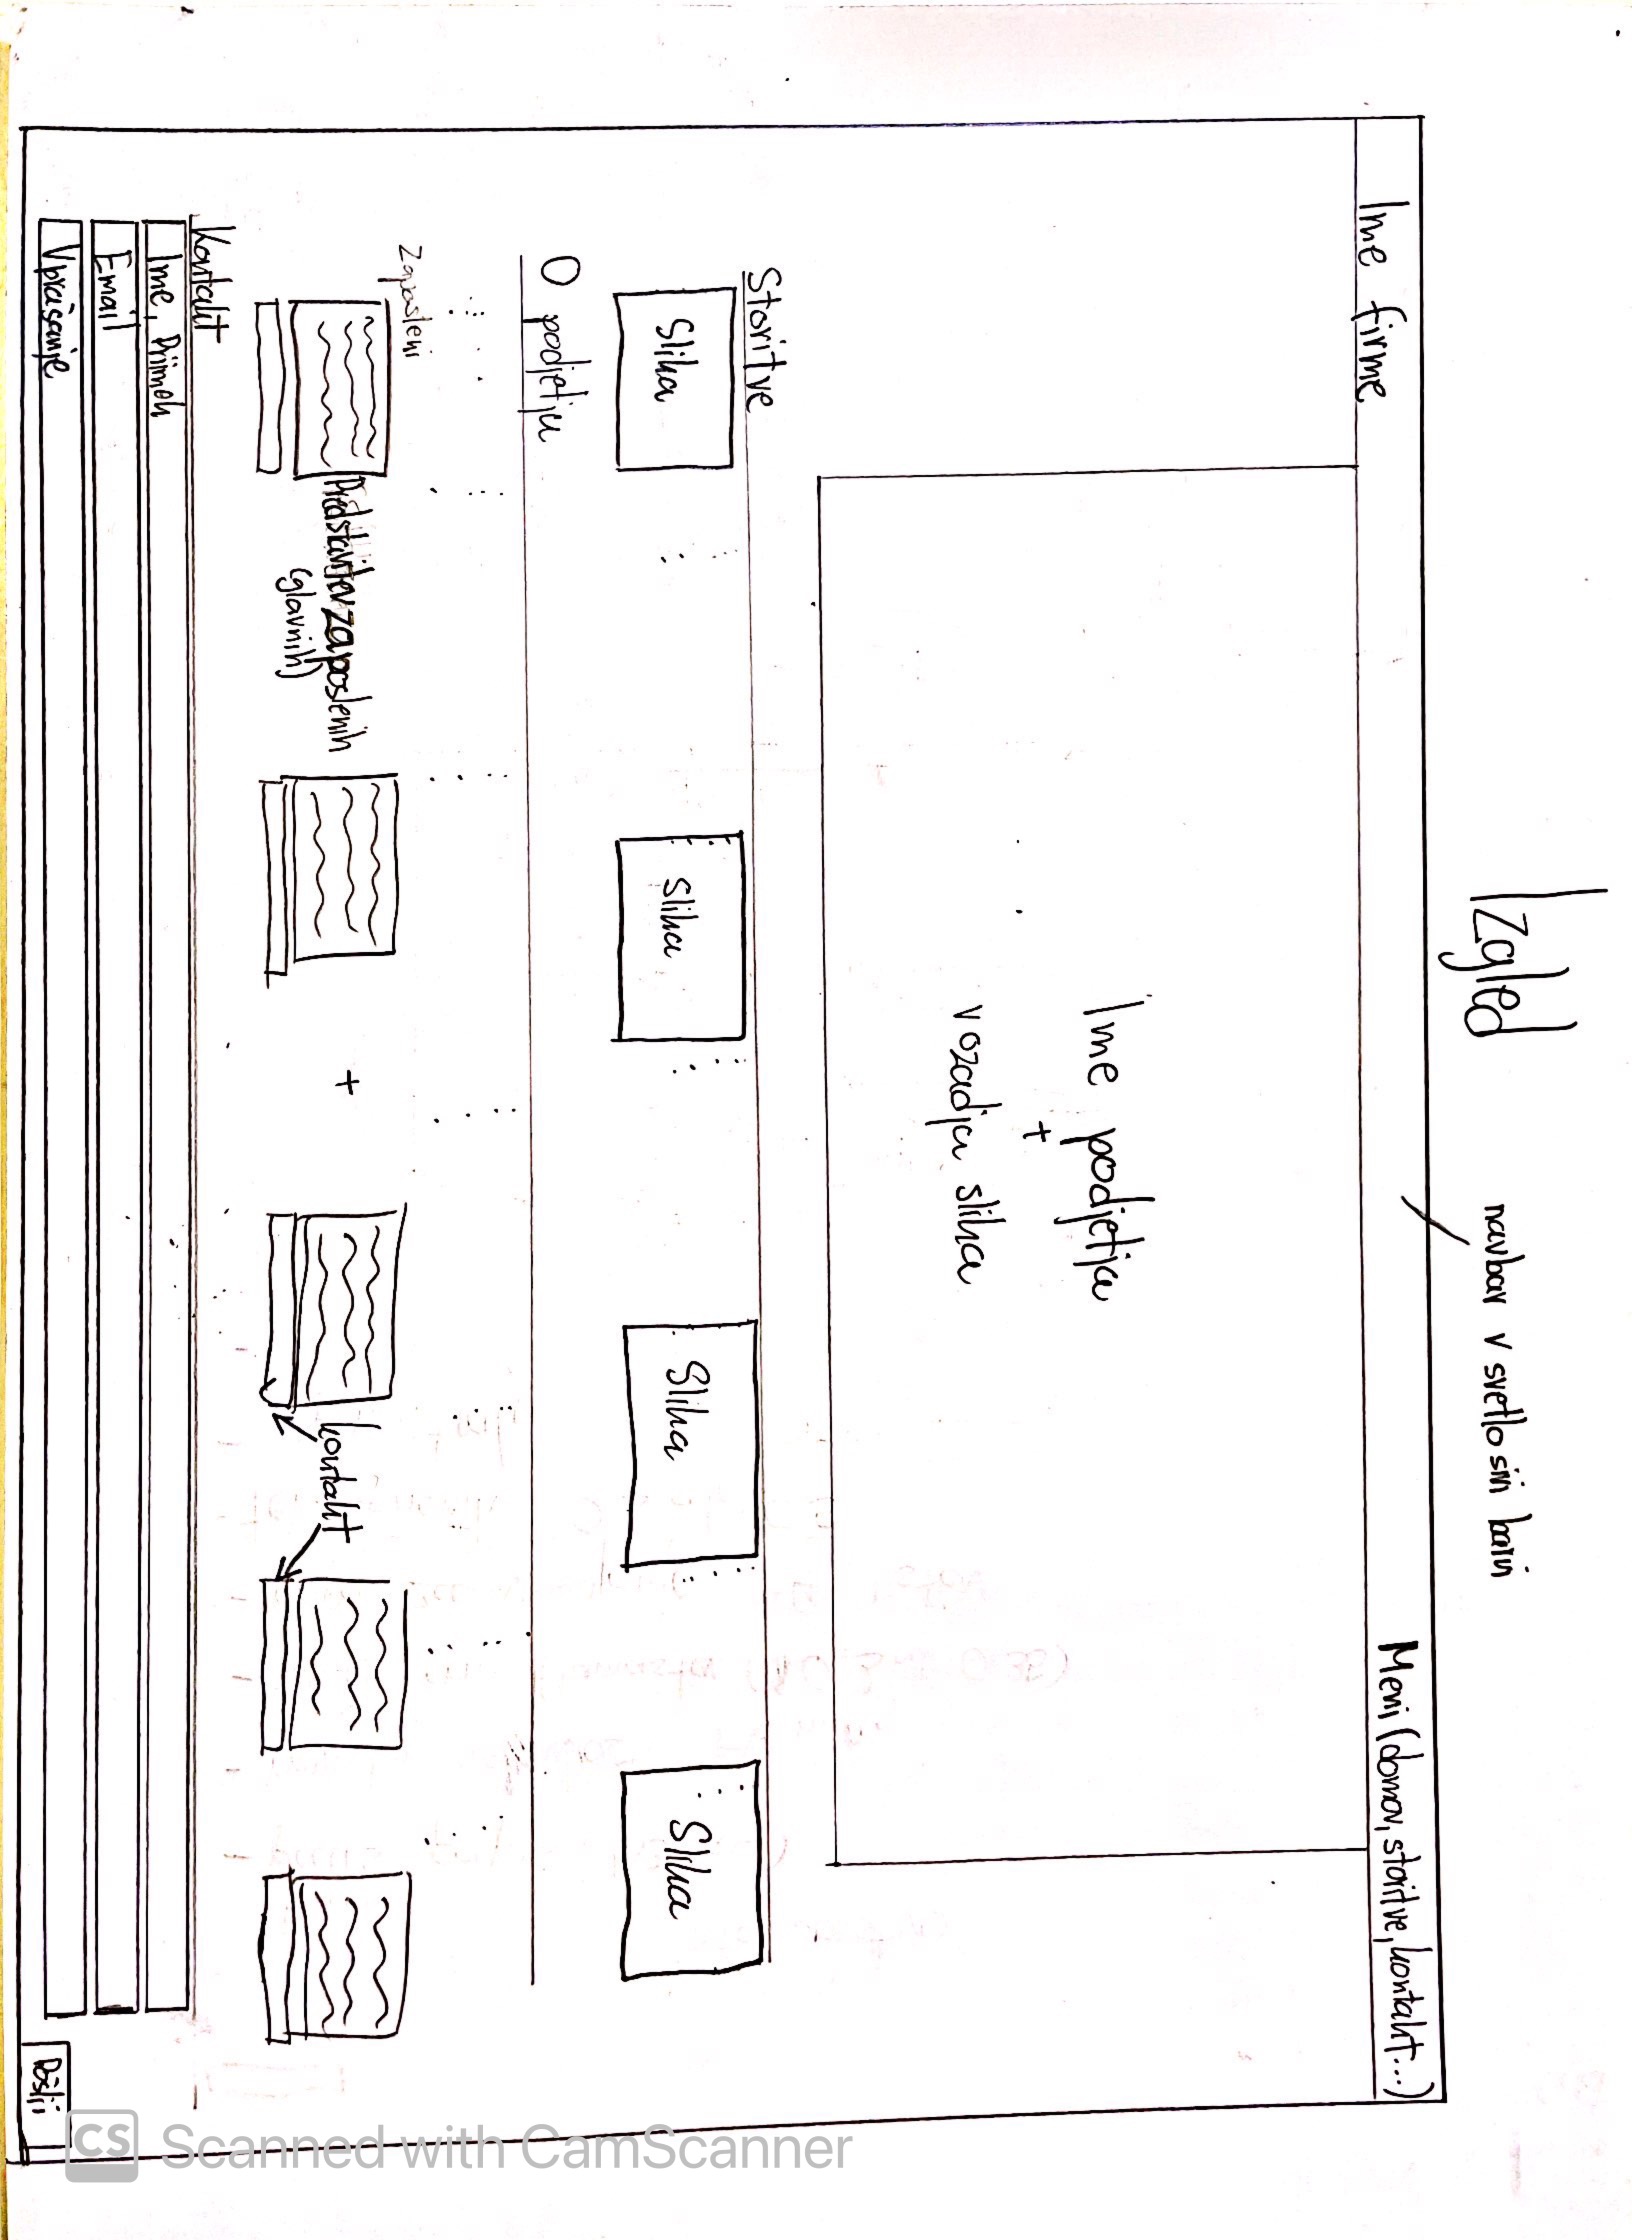 Izgled
navbar v svetlo sivi barvi
Ime firme
Meni (domov, storitve, kontakt...)
Ime podjetja
+
v ozadju slika
Storitve
Slika
Slika
Slika
Slika
O podjetju
Zaposleni
Predstavitev zaposlenih
(glavnih)
+
kontakt
Kontakt
Ime, Priimek
Email
Vprašanje
Pošlji
CS Scanned with CamScanner